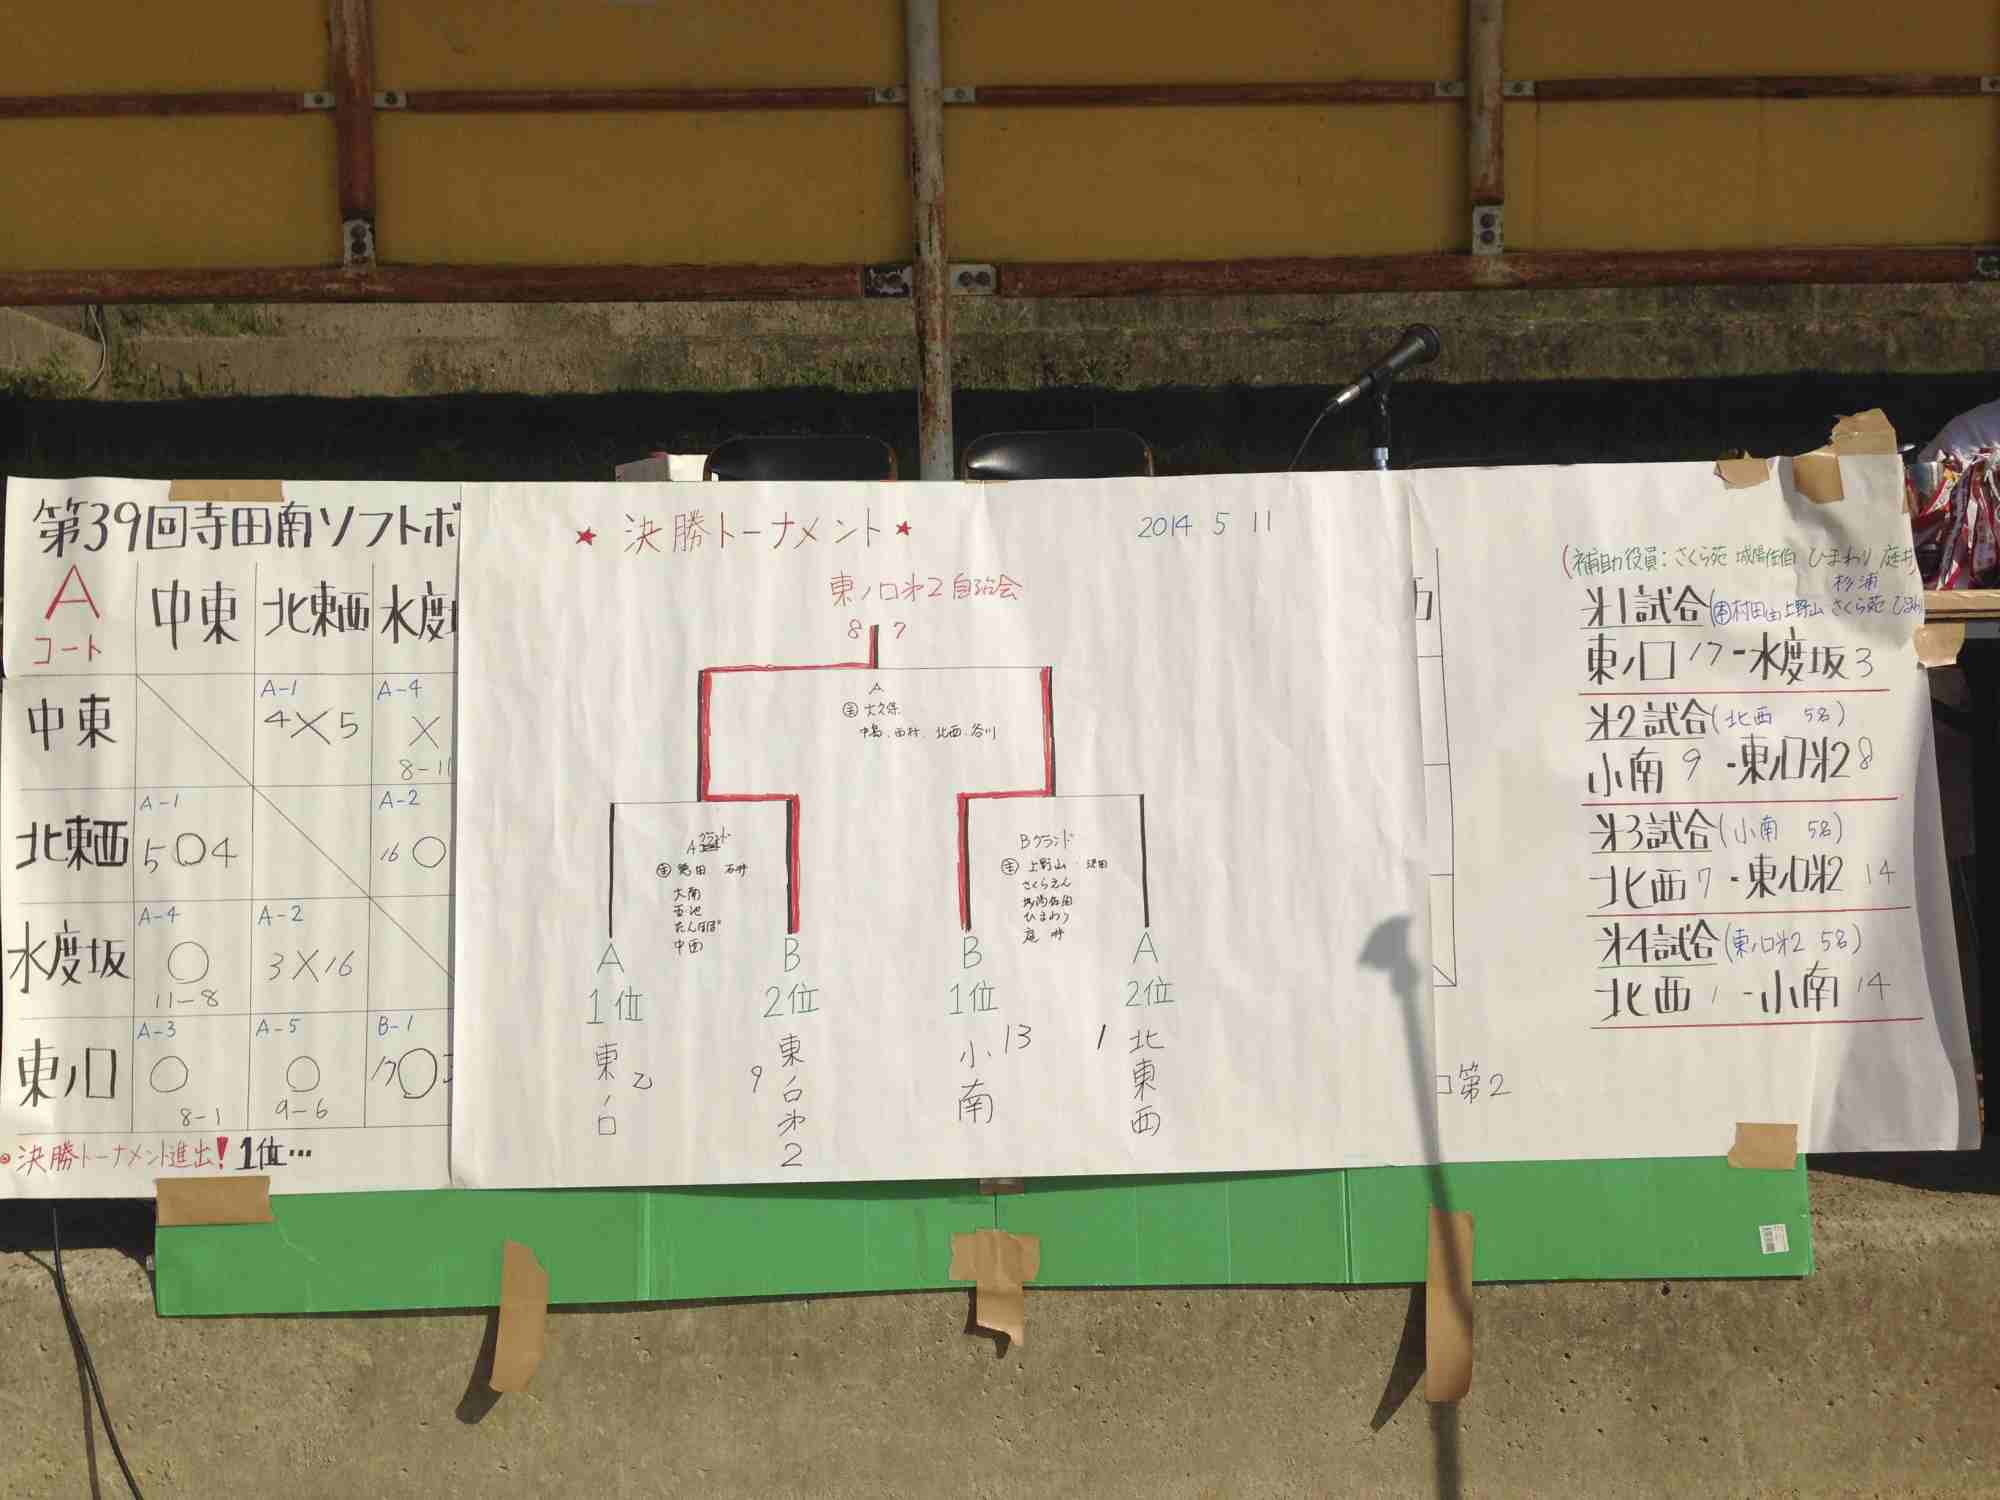 第39回寺田南ソフトボ
A
コート
中東
北東西
水度
中東
A-1
4×5
A-4
×
8-11
北東西
A-1
5○4
A-2
16○
水度坂
A-4
○
11-8
A-2
3×16
東ノ口
A-3
○
8-1
A-5
○
9-6
B-1
17○3
決勝トーナメント進出! 1位…
★決勝トーナメント★
2014 5 11
東ノ口第2自治会
8 7
A
大久保
中島、西村、北西、谷川
A
石井
大南
たんぽぽ
中西
Bグランド
上野山
さくらえん
ひまわり
庭井
A
1位
東ノ口
2
B
2位
東ノ口第2
9
B
1位
小南
13
A
2位
北東西
1
口第2
(補助役員:さくら苑 城陽佐伯 ひまわり 庭井)
杉浦
第1試合(村田 上野山 さくら苑 ひまわ
東ノ口 17-水度坂 3
第2試合(北西 5名)
小南 9-東ノ口第2 8
第3試合(小南 5名)
北西 7-東ノ口第2 14
第4試合(東ノ口第2 5名)
北西 1-小南 14